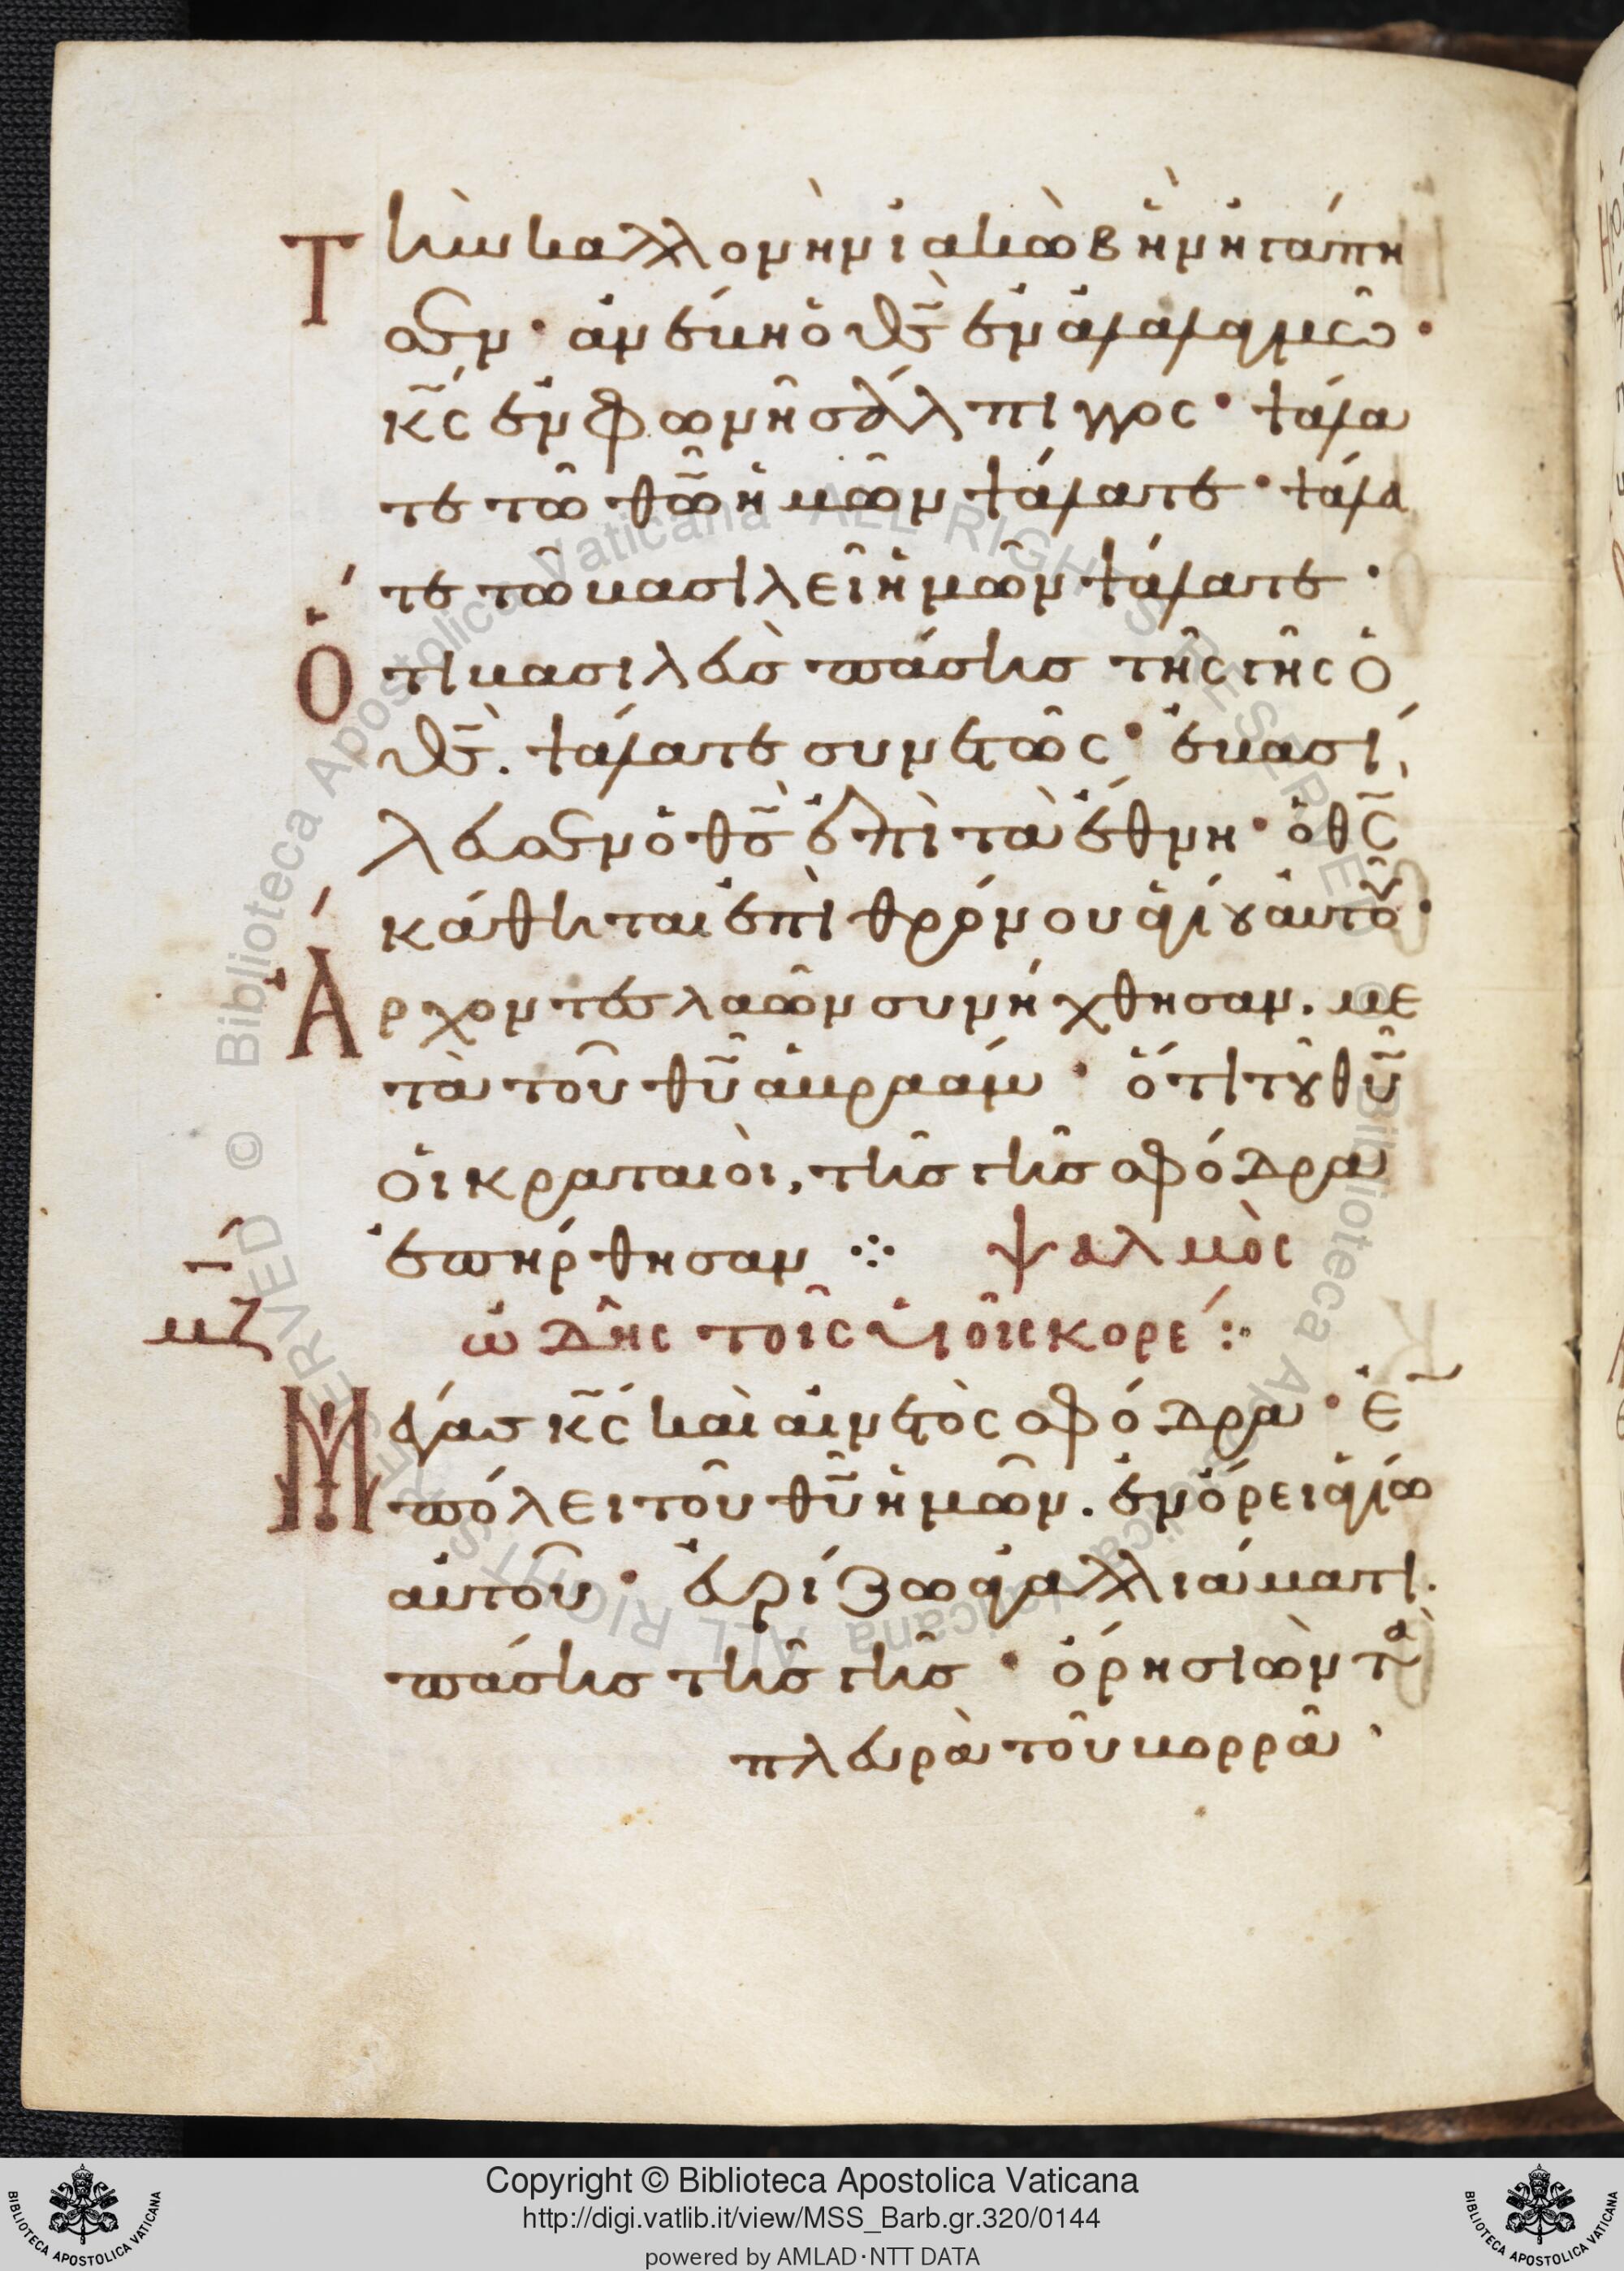 Τὴν καλλονὴν ἰακὼβ ἣν ἠγάπη
σεν· ἀνέβη ὁ θς̄ ἐν ἀλαλαγμῶ·
κ̄ς ἐν φωνῆ σάλπιγγος· ψάλα
τε τῶ θω̄ ἡμῶν ψάλατε· ψάλα
τε τῶ βασιλεῖ ἡμῶν ψάλατε·
Ὅτι βασιλεὺς πάσης τῆς γῆς ὁ
θς̄. ψάλατε συνετῶς· ἐβασί
λευσεν ὁ θς̄ ἐπὶ τὰ ἔθνη· ὁ θς̄
κάθηται ἐπὶ θρόνου ἁγίου αὐτοῦ·
Ἄρχοντες λαῶν συνήχθησαν. με
τὰ τοῦ θῡ ἁβραάμ· ὅτι τοῦ θῡ
οἱ κραταιοὶ, τῆς γῆς σφόδρα
ἐπήρθησαν ⁘ ψαλμὸς
μζ ὠδῆς τοῖς υἱοῖς κορέ :·
Μέγας κ̄ς καὶ αἰνετὸς σφόδρα· ἐ̄
πόλει τοῦ θῡ ἡμῶν. ἐν ὄρει ἁγίω
αὐτοῦ· εὐρίζω ἀγαλλιάματι.
πάσης τῆς γῆς· ὄρη σιὼν τὰ
πλευρὰ τοῦ βορρᾶ·
Copyright © Biblioteca Apostolica Vaticana
http://digi.vatlib.it/view/MSS_Barb.gr.320/0144
powered by AMLAD·NTT DATA
BIBLIOTECA APOSTOLICA VATICANA
BIBLIOTECA APOSTOLICA VATICANA